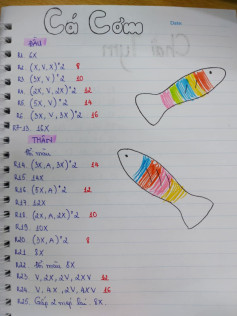 Cá Cơm
ĐẦU
R1. 6X
R2. (X, V, X)*2 8
R3. (3X, V)*2 10
R4. (2X, V, 2X)*2 12
R5. (5X, V)*2 14
R6. (3X, V, 3X)*2 16
R7-13. 16X
THÂN
Đổi màu
R14. (3X, A, 3X)*2 14
R15. 14X
R16. (5X, A)*2 12
R17. 12X
R18. (2X, A, 2X)*2 10
R19. 10X
R20. (3X, A)*2 8
R21. 8X
R22. Đổi màu 8X
R23. V, 2X, 2V, 2X, V 12
R24. V, 4X, 2V, 4X, V 16
R25. Gấp 2 mép lại. 8X.